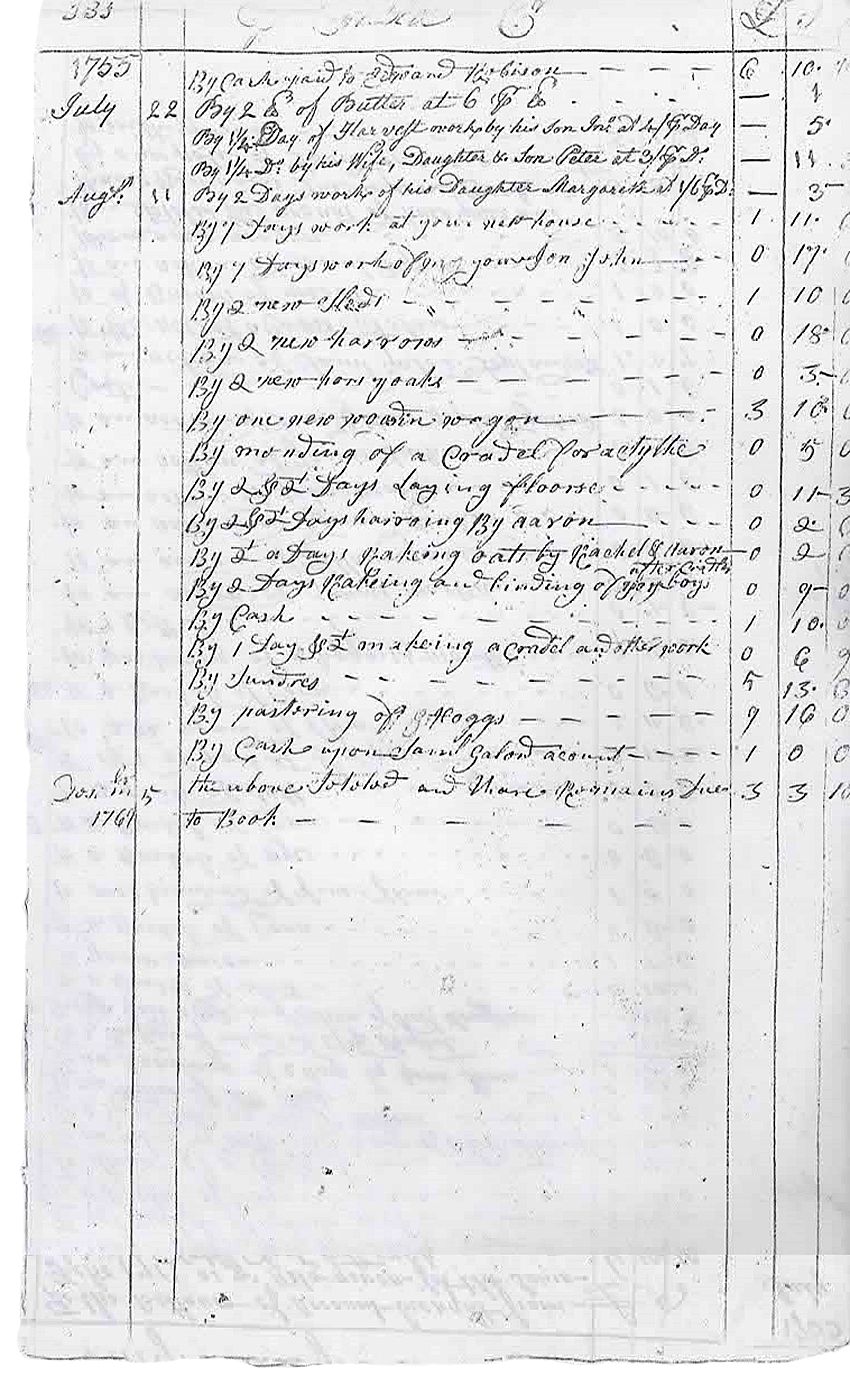 333 £
1755 By Cash paid to Edward Robison — — — — 6 10
July 22 By 2 lb of Butter at 6 P lb — 1
By 1¼ Day of Harvest work by his Son Jno at 4/ P Day — 5
By 1¼ Do. by his Wife, Daughter & Son Peter at 3/ P Do. — 11
Augt. 11 By 2 Days work of his Daughter Margarett at 1/6 P D: — 3
By 7 Days work at your new house 1 11
By 7 Days work of your Son John 0 17
By 2 new Sleds 1 10
By 2 new harrows 0 18
By 2 new hors yoaks 0 3
By one new wooden wagon 3 10 0
By mending of a Cradel for a sythe 0 5 0
By 2 & ½ Days Laying floorse 0 11 3
By 2 & ½ Days harroing By aaron 0 2
By ½ a Days Rakeing oats by Rachel & Aaron 0 2
after Cradler
By 2 Days Rakeing and binding of your boys 0 9 0
By Cash 1 10 0
By 1 Day & ½ makeing a Cradel and other work 0 6 9
By Sundres 5 13
By pastering of Hoggs 9 16 0
By Cash upon Saml Galord acount 1 0 0
5 the above Setteled and thare Remains Due 3 3 10
1769 to Book